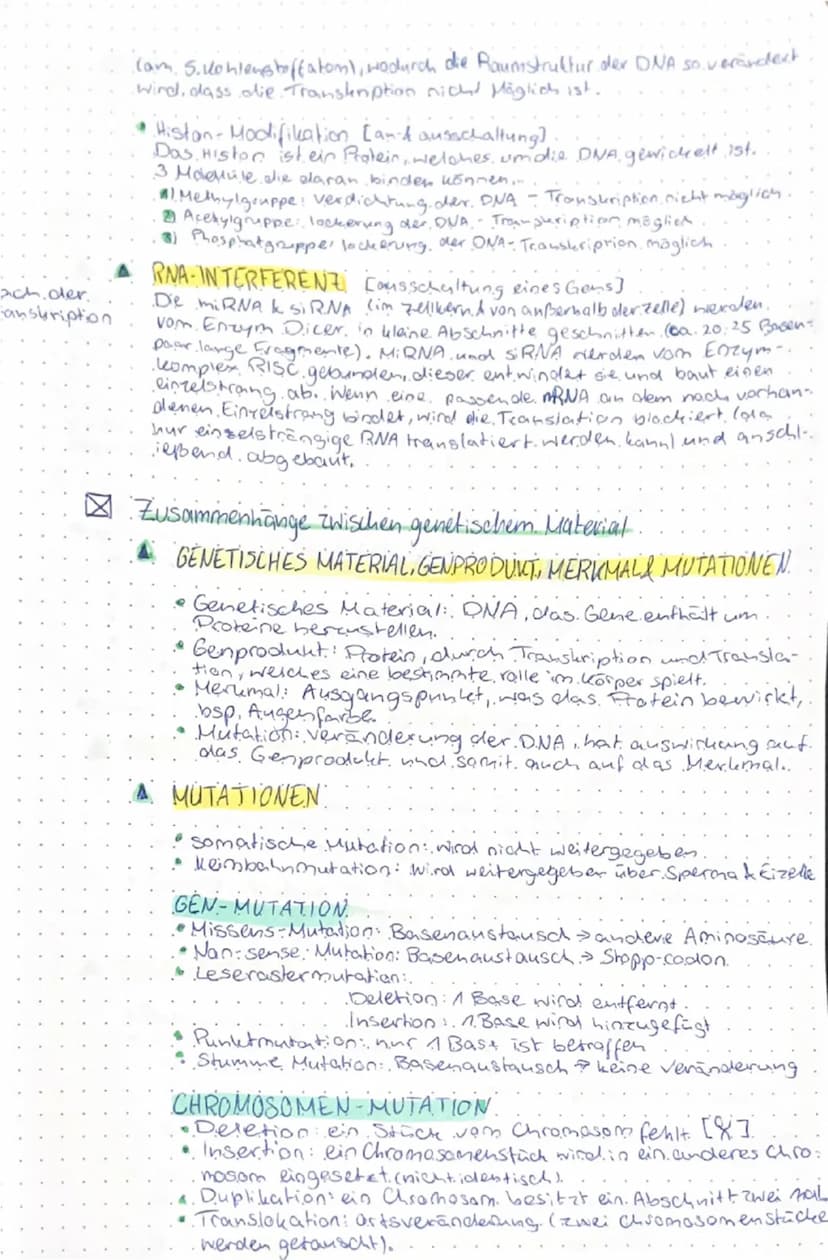 (am 5. Kohlenstoffatom), wodurch die Raumstruktur der DNA so verändert
wird, dass die Transkription nicht Möglich ist.
• Histon-Modifikation [an- & ausschaltung]
Das Histon ist ein Protein, welches um die DNA gewickelt ist.
3 Moleküle die daran binden können.
1) Methylgruppe: Verdichtung der DNA - Transkription nicht möglich
2) Acetylgruppe: lockerung der DNA - Transkription möglich
3) Phosphatgruppe: lockerung der DNA - Transkription möglich
RNA-INTERFERENZ [ausschaltung eines Gens]
ach der
anskription
Die miRNA & siRNA (im Zellkern & von außerhalb der Zelle) werden
vom Enzym Dicer in kleine Abschnitte geschnitten (ca. 20-25 Basen-
paar lange Fragmente). MiRNA und siRNA werden vom Enzym-
komplex RISC gebunden, dieser entwindet sie und baut einen
einzelstrang ab. Wenn eine passende mRNA an dem noch vorhan-
denen Einzelstrang bindet, wird die Translation blockiert (da
nur einzelsträngige RNA translatiert werden kann) und anschl-
ießend abgebaut.
Zusammenhänge zwischen genetischem Material
GENETISCHES MATERIAL, GENPRODUKT, MERKMAL & MUTATIONEN
• Genetisches Material: DNA, das Gene enthält um
Proteine herzustellen.
• Genprodukt: Protein, durch Transkription und Transla-
tion, welches eine bestimmte rolle im Körper spielt.
• Merkmal: Ausgangspunkt, was das Protein bewirkt,
bsp. Augenfarbe.
• Mutation: veränderung der DNA, hat auswirkung auf
das Genprodukt und somit auch auf das Merkmal.
MUTATIONEN
• somatische Mutation: wird nicht weitergegeben
• Keimbahnmutation: wird weitergegeben über Sperma & Eizelle
GEN-MUTATION
• Missens-Mutation: Basenaustausch → andere Aminosäure
• Non-sense-Mutation: Basenaustausch → Stopp-codon
• Leserastermutation:
Deletion: 1 Base wird entfernt
Insertion: 1 Base wird hinzugefügt
• Punktmutation: nur 1 Base ist betroffen
• Stumme Mutation: Basenaustausch → keine Veränderung
CHROMOSOMEN-MUTATION
• Deletion: ein Stück vom Chromosom fehlt
• Insertion: ein Chromosomenstück wird in ein anderes Chro-
mosom eingesetzt (nicht identisch).
• Duplikation: ein Chromosom besitzt ein Abschnitt zwei mal
• Translokation: ortsveränderung (zwei Chromosomenstücke
werden getauscht).